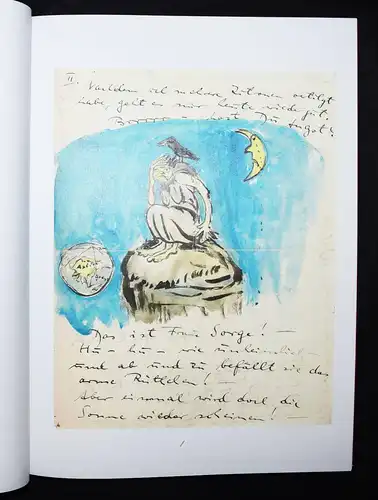 II. Nachdem ich mehrere Zitronen vertilgt
habe, geht es mir heute wieder gut.
Brrrrr — hast Du Angst?
Das ist Frau Sorge! —
Hu – hu – wie unheimlich —
und ab und zu befällt sie das
arme Rütchen! —
Aber einmal wird doch die
Sonne wieder scheinen! —